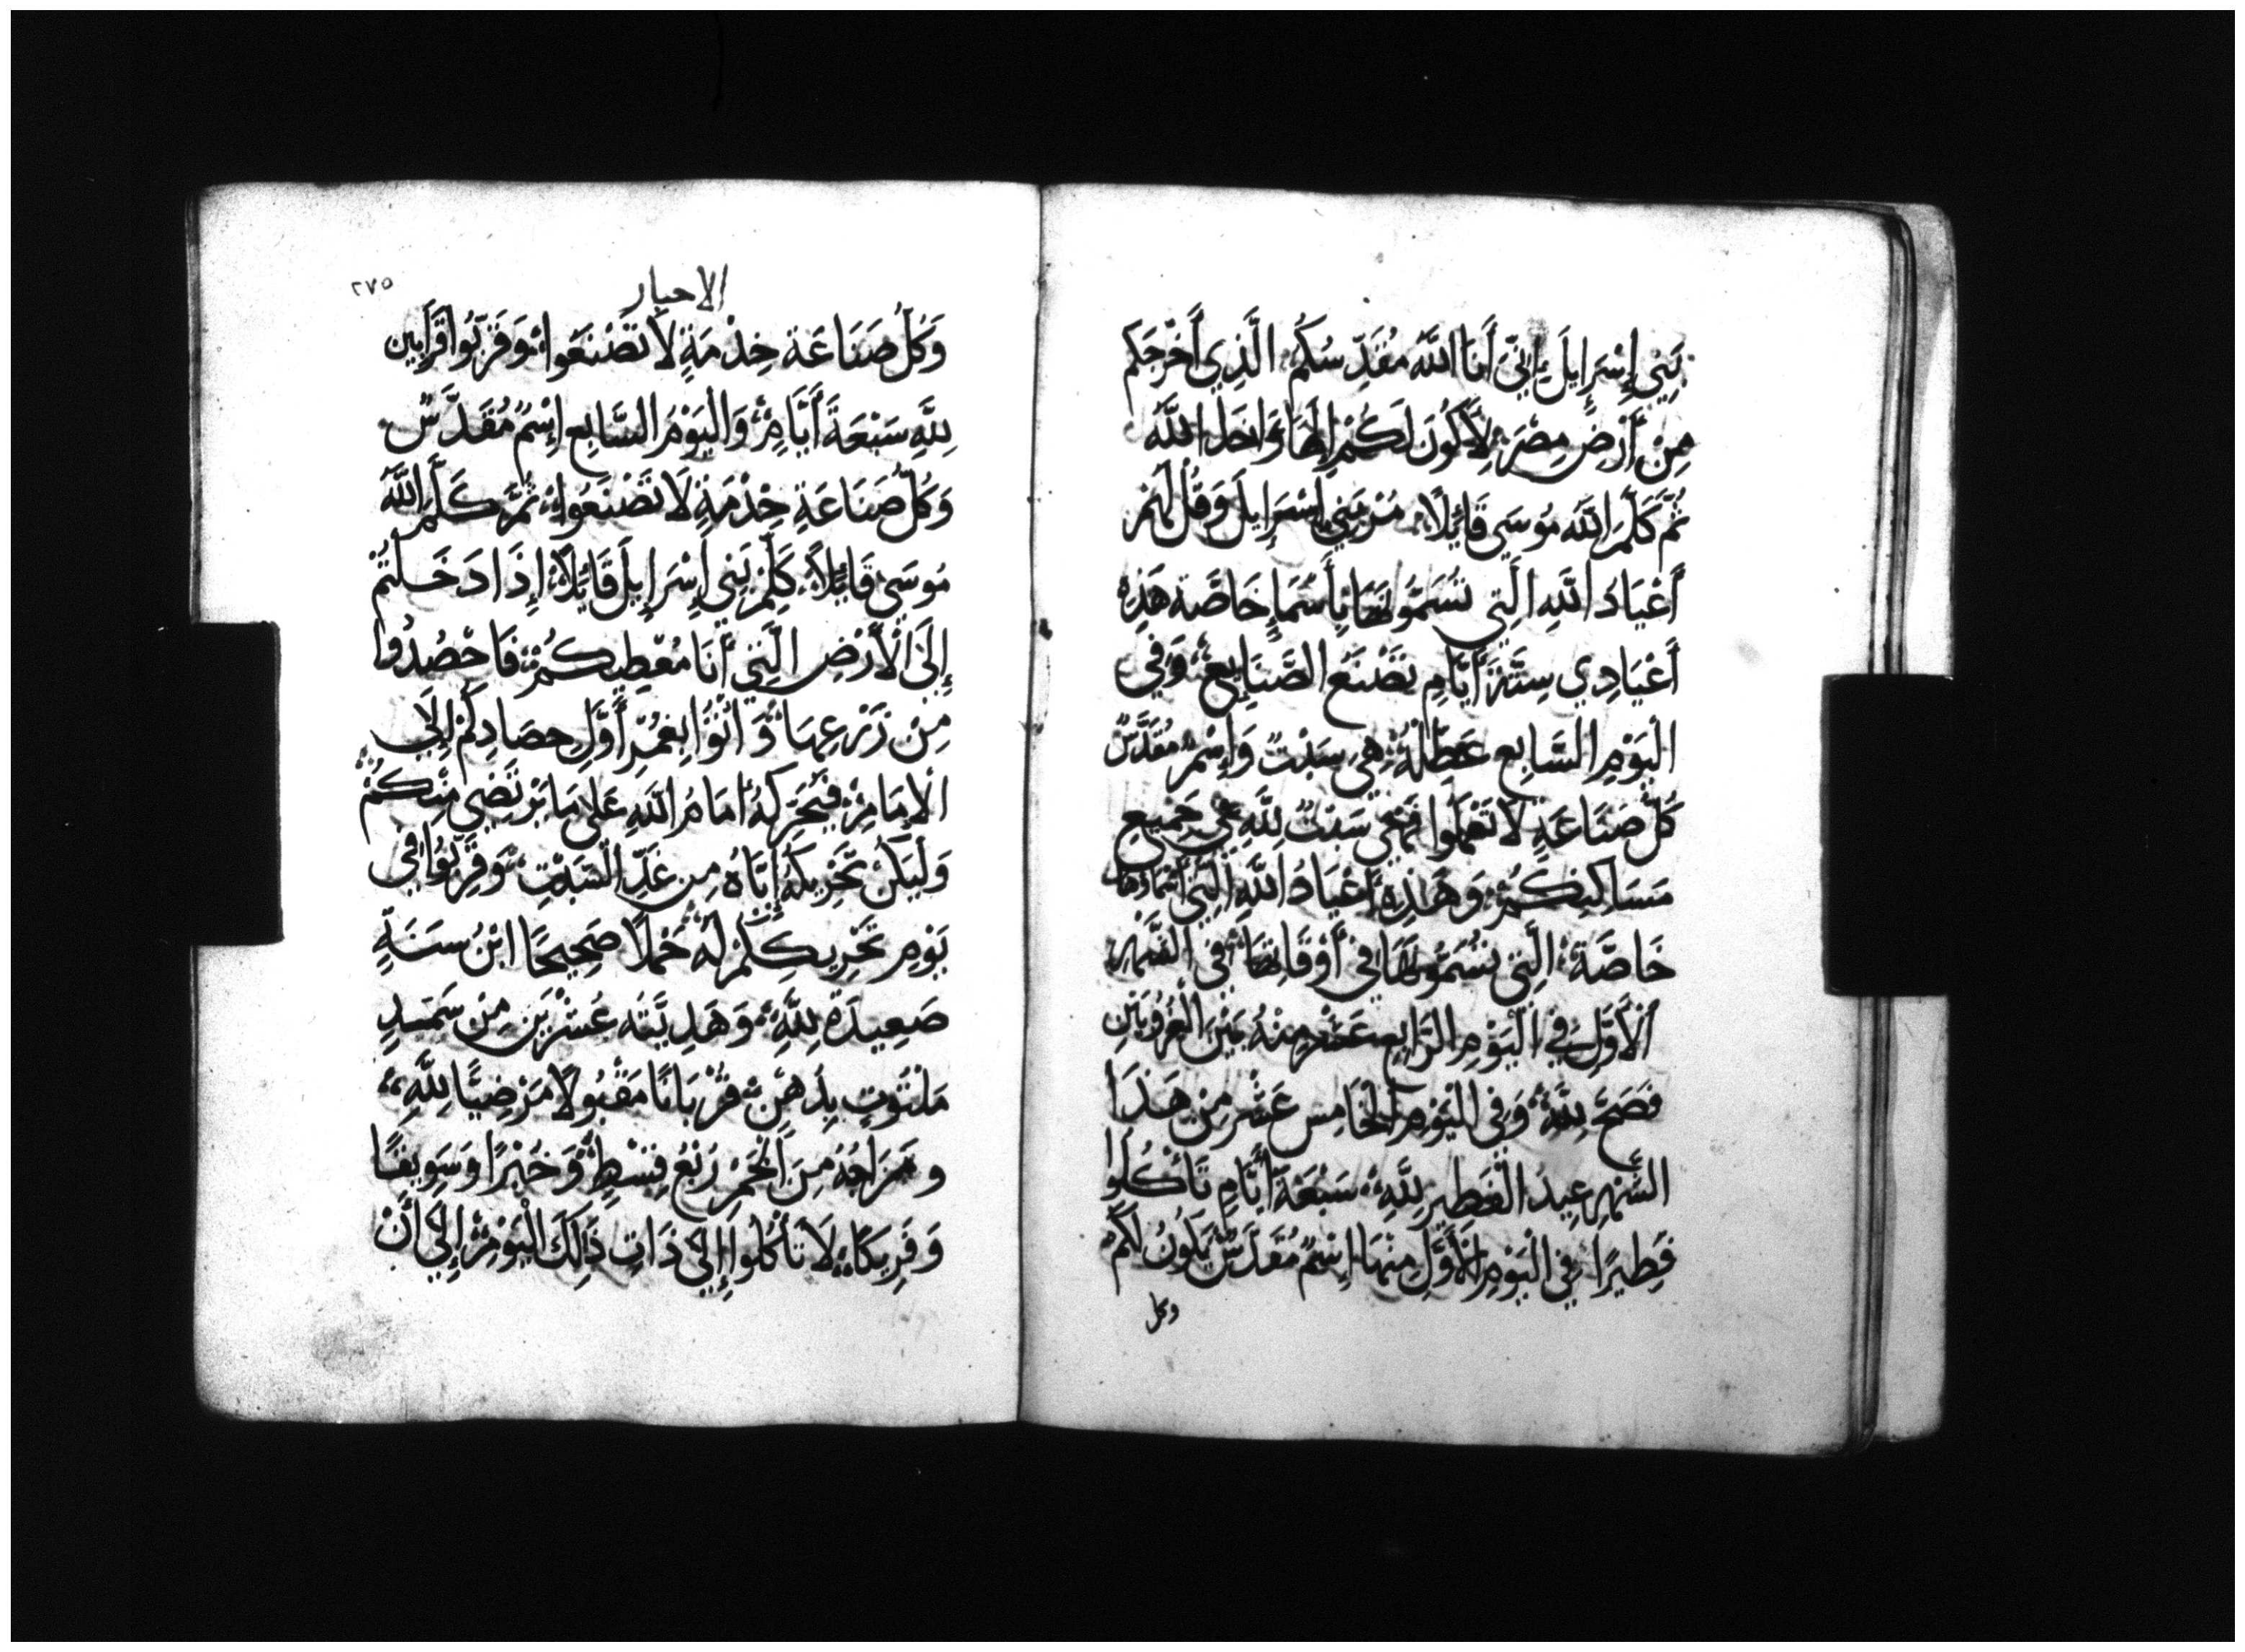 بَنِي إِسْرَايِلَ إِنِّي أَنَا اللَّهُ مُقَدِّسُكُم الَّذِي أَخْرَجَكم
مِنْ أَرْضِ مِصْرَ لِأَكُونَ لَكُمْ إِلَهًا وَاحدا للَّه
ثُمَّ كَلَّمَ اللَّهُ مُوسَى قَائِلًا مُرْ بَنِي إِسْرَايِلَ وَقُل لَهُمْ
أَعْيَادُ اللَّهِ الَّتِي تُسَمُّونَهَا بِأَسْمَاءٍ خَاصَّة هَذِهِ
أَعْيَادِي سِتَّةَ أَيَّامٍ تَصْنَعُ الصَّنَايِعَ وَفِي
الْيَوْمِ السَّابِعِ عَطْلَةٌ هِيَ سَبْتٌ وَإِسْمٌ مُقَدَّسٌ
كُلَّ صَنَاعَةٍ لَا تَعْمَلُوا فَهِيَ سَبْتٌ لِلَّهِ فِي جَمِيعِ
مَسَاكِنِكُمْ وَهَذِهِ أَعْيَادُ اللَّهِ الَّتِي أَسْمَاؤُهَا
خَاصَّة الَّتِي تُسَمُّونَهَا فِي أَوْقَاتِهَا فِي الشَّهْرِ
الْأَوَّلِ فِي الْيَوْمِ الرَّابِعِ عَشَر مِنْهُ بَيْنَ الْغُرُوبَيْنِ
فَصَحٌ لِلَّهِ وَفِي الْيَوْمِ الْخَامِس عَشَر مِن هَذَا
الشَّهْرِ عِيدُ الْفَطِيرِ لِلَّهِ سَبْعَةَ أَيَّامٍ تَأْكُلُوا
فَطِيرًا فِي الْيَوْمِ الْأَوَّلِ مِنْهَا إِسْمٌ مُقَدَّسٌ يَكُونُ لَكُم
وكل
٢٧٥
الاحبار
وَكُلَّ صَنَاعَة خِدْمَةٍ لَا تَصْنَعُوا وَقَرِّبُوا قَرَابِين
لِلَّهِ سَبْعَةَ أَيَّامٍ وَالْيَوْمُ السَّابِع إِسْمٌ مُقَدَّسٌ
وَكُلَّ صَنَاعَةِ خِدْمَةٍ لَا تَصْنَعُوا ثُمَّ كَلَّمَ اللَّهُ
مُوسَى قَائِلاً كَلِّمْ بَنِي إِسْرَايِلَ قَائِلًا إِذَا دَخَلتُمْ
إِلَى الْأَرْضِ الَّتِي أَنَا مُعْطِيكُمْ فَاحْصُدُوا
مِنْ زَرْعِهَا وَأتُوا بِغُمْرِ أَوَّلِ حصَادِكُم إِلَى
الإِمَامِ فَيُحَرِّكُهُ أَمَامَ اللَّهِ عَلَى مَا يَرْتَضِي مِنْكُمْ
وَلْيَكُنْ تَحْرِيكَهُ إِيَّاهُ مِن غَدِ السَّبْتِ وَقَرِّبُوا فِي
يَوْمِ تَحْرِيكِكُمْ لَهُ حَمَلًا صَحِيحًا ابْنُ سَنَةٍ
صَعِيدَة لِلَّهِ وَهَدِيَّتَه عُشْرَيْنِ مِنْ سَمَيدٍ
مَلْتُوتٍ بِدُهْنٍ قُرْبَانًا مَقْبُولًا مَرْضِيًّا لِلَّهِ
ومَزَاجُهُ مِنَ الْخَمْرِ رُبْعُ قِسْطٍ وَخُبْزًا وَسَوِيقًا
وَفَرِيكًا لَا تَأكُلُوا إِلَى ذَاتِ ذَلِكَ الْيَوْمِ إِلَى أَنْ